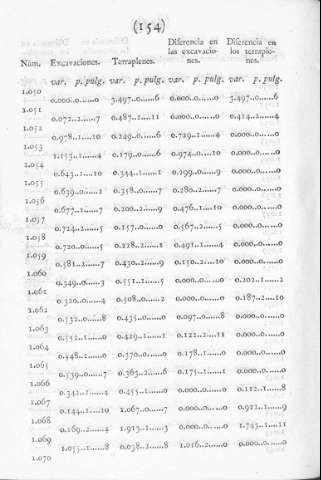 (154)
Diferencia en Diferencia en
las excavacio- los terraple-
Núm. Excavaciones. Terraplenes. nes. nes.
var. p. pulg. var. p. pulg. var. p. pulg. var. p. pulg.
1.050
0.000..0......0 3.497..0......6 0.000..0......0 3.497..0......6
1.051
0.072..2......7 0.487..1....11 0.000..0......0 0.414..2......4
1.052
0.978..1....10 0.249..0......6 0.729..1......4 0.000..0......0
1.053
1.153..1......4 0.179..0......6 0.974..0....10 0.000..0......0
1.054
0.643..1....10 0.344..1......1 0.299..0......9 0.000..0......0
1.055
0.639..0......2 0.358..0......7 0.280..2......7 0.000..0......0
1.056
0.677..1......7 0.200..2......9 0.476..1....10 0.000..0......0
1.057
0.724..2......5 0.157..0......0 0.567..2......5 0.000..0......0
1.058
0.720..0......5 0.228..2......1 0.491..1......4 0.000..0......0
1.059
0.581..2......7 0.430..2......9 0.150..2....10 0.000..0......0
1.060
0.349..0......3 0.551..1......5 0.000..0......0 0.202..1......2
1.061
0.320..0......4 0.508..0......2 0.000..0......0 0.187..2....10
1.062
0.532..0......8 0.435..0......0 0.097..0......8 0.000..0......0
1.063
0.552..1......0 0.429..1......1 0.122..2....11 0.000..0......0
1.064
0.548..1......0 0.370..0......0 0.178..1......0 0.000..0......0
1.065
0.539..0......7 0.363..2......6 0.175..1......1 0.000..0......0
1.066
0.342..1......4 0.455..1......0 0.000..0......0 0.112..1......8
1.067
0.144..1....10 1.067..0......7 0.000..0......0 0.922..1......9
1.068
0.169..2......4 1.913..1......3 0.000..0......0 1.743..1....11
1.069
1.055..1......8 0.038..2......8 1.056..2......0 0.000..0......0
1.070